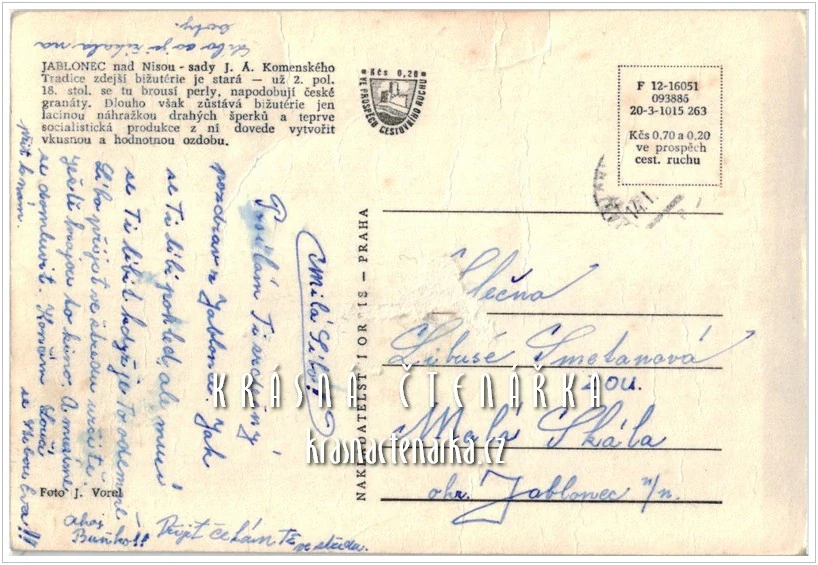 Libo co jsi říkala na
boty.
JABLONEC nad Nisou - sady J. A. Komenského
Tradice zdejší bižutérie je stará — už 2. pol.
18. stol. se tu brousí perly, napodobují české
granáty. Dlouho však zůstává bižutérie jen
lacinou náhražkou drahých šperků a teprve
socialistická produkce z ní dovede vytvořit
vkusnou a hodnotnou ozdobu.
Kčs 0,20
VE PROSPĚCH CESTOVNÍHO RUCHU
F 12-16051
093886
20-3-1015 263
Kčs 0,70 a 0,20
ve prospěch
cest. ruchu
Milá Libo!
Posílám Ti srdečný
pozdrav z Jablonce. Jak
se Ti líbí pohled, ale musí
se Ti líbit když je to odemně
Libo přijet ve středu určitě
ještě hrajou to kino. A musíme
se domluvit. Končím Loučí
se Miloušva!!
přít k nám.
Ahoj
Buňko!!
Přijít čekám Tě
ve středu.
Foto J. Vorel
NAKLADATELSTVÍ ORBIS — PRAHA
Slečna
Libuše Smetanová
ZOU.
Malá Skála
okr. Jablonec n/n.
KRÁSNÁ ČTENÁŘKA
krasnactenarka.cz